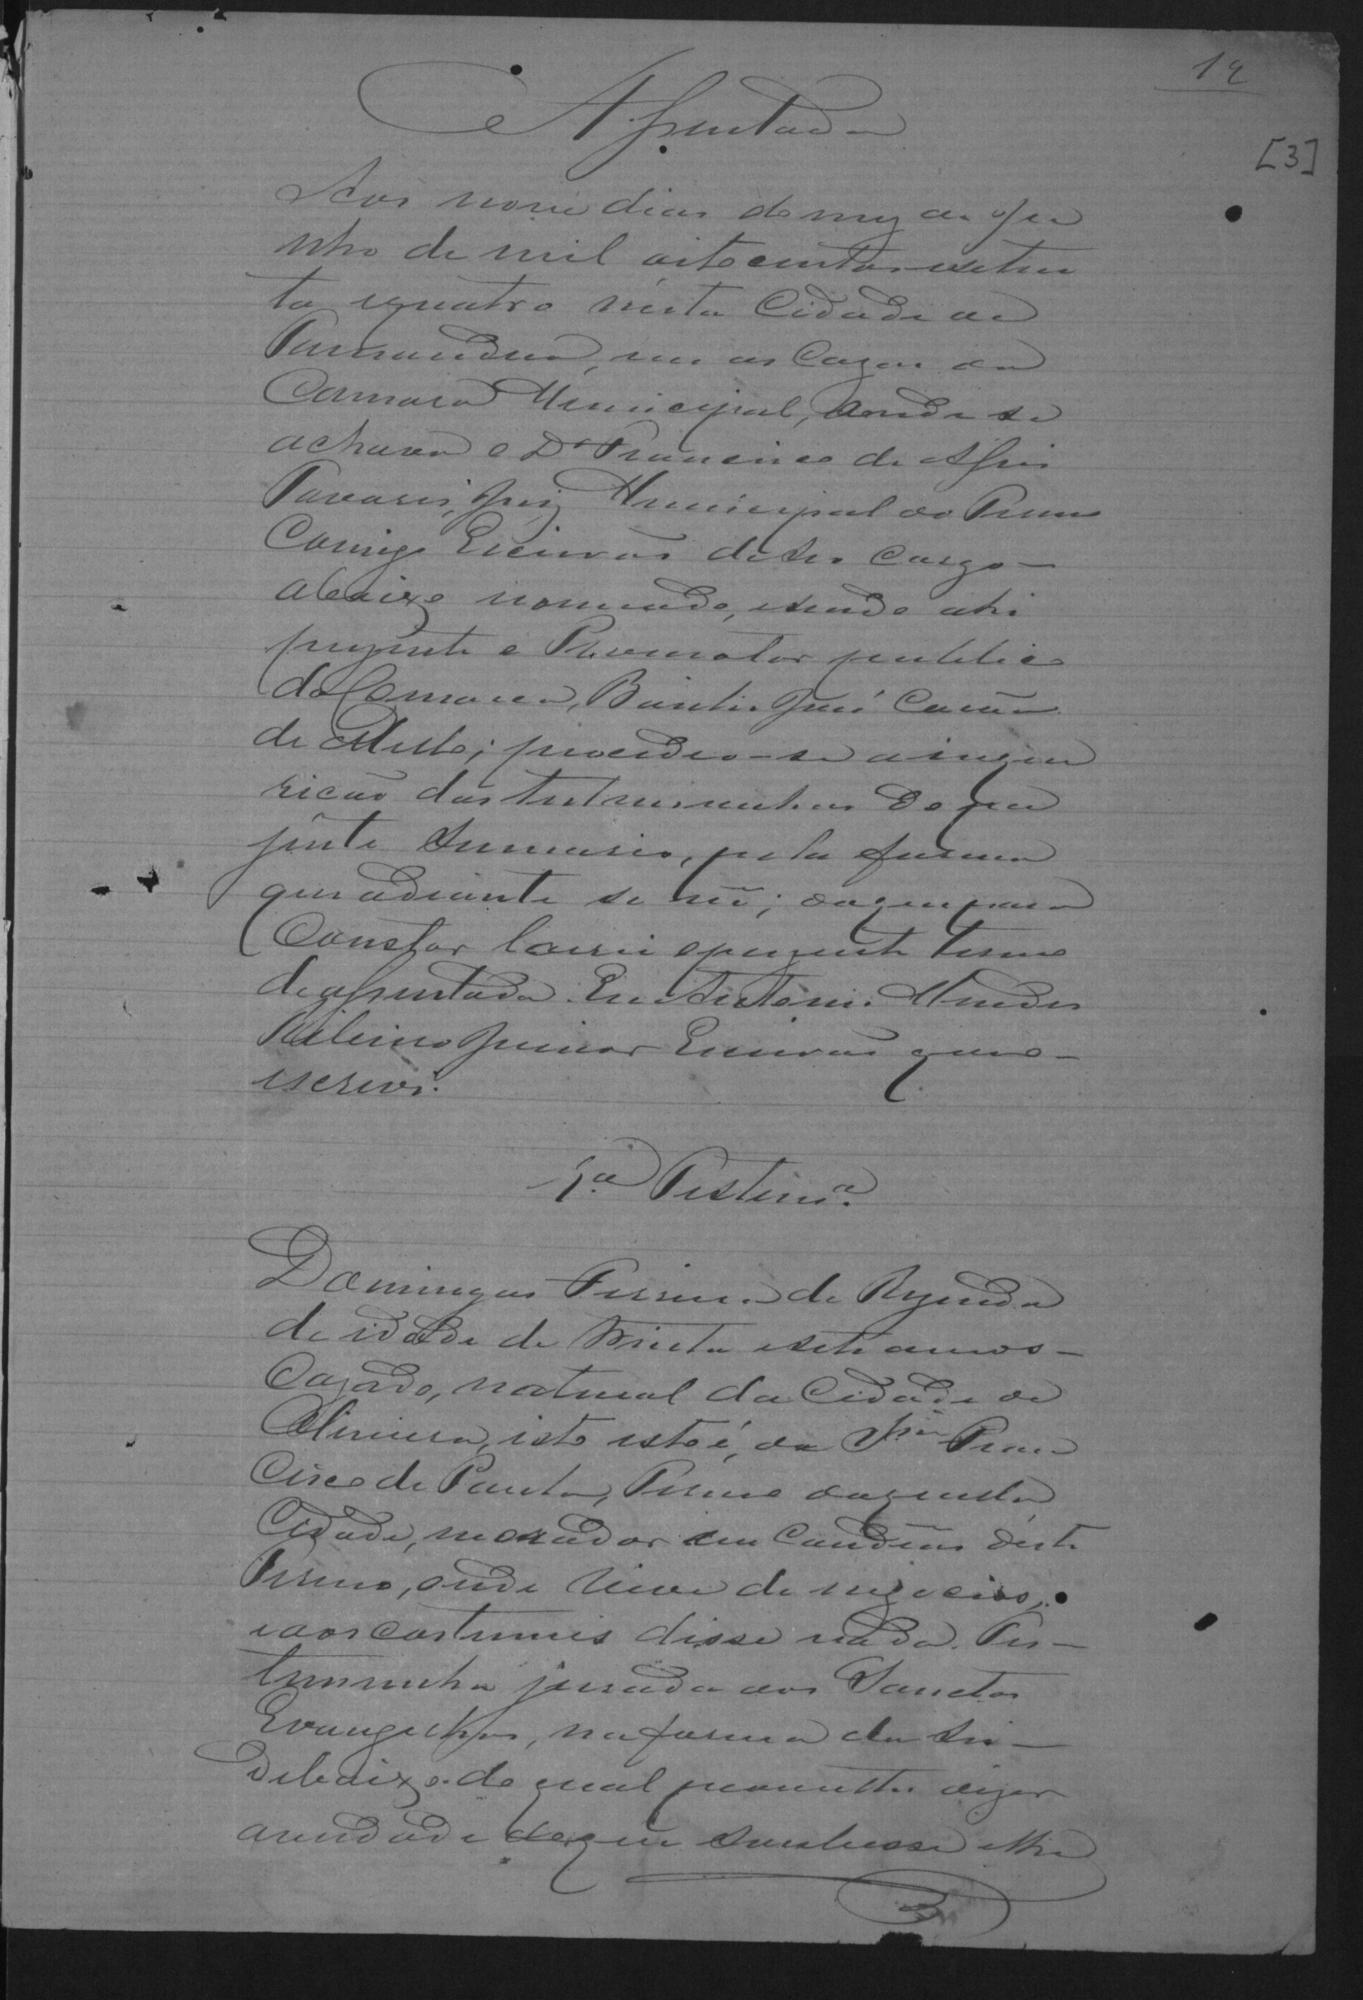 14
[3]
Assentada
Aos nove dias do mez de Ju
nho de mil oitocentos e seten
ta e quatro nésta Cidade de
em as Cazas da
Camara Municipal, aonde se
achava o Dr. Francisco de Assis
Tavares, Juiz Municipal do Termo
Comigo Escrivão de seo cargo
abaixo nomeado, e sendo ahi
prezente o Promotor publico
da Comarca, José
de Mello; procedeo-se a inque
rição das testemunhas do pre
zente Summario, pela forma
que adiante se vê; do que para
Constar lavrei o prezente termo
de assentada. Eu Antonio Mendes
Ribeiro Junior Escrivão que o
escrevi.
1a. Testema.
Domingos Ferreira de Rezende
de idade de trinta e sete annos
Cazado, natural da Cidade de
Oliveira, isto isto é, da Fran
cisco de Paula, Termo daquella
Cidade, morador em Candeias déste
Termo, onde vive de negocios,
e aos costumes disse nada. Tes-
temunha jurada aos Sanctos
Evangelhos, na forma da Lei
debaixo do qual prometteo dizer
a verdade do que soubesse e lhe